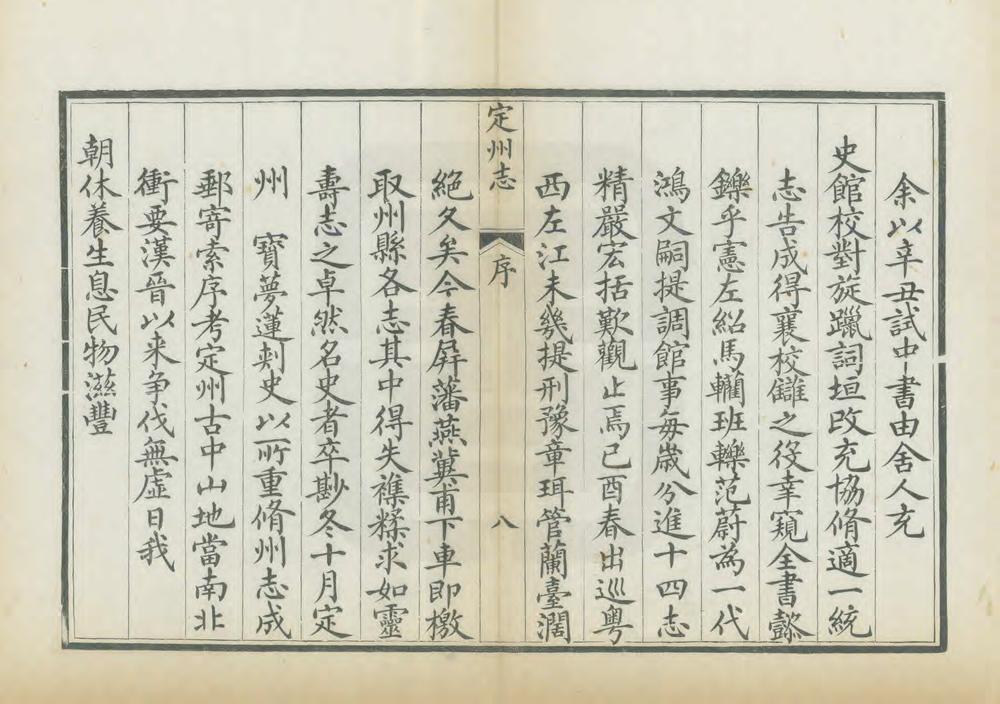 余以辛丑試中書由舍人充
史館校對旋躐詞垣改充協脩適一統
志告成得襄校讎之役幸窺全書懿
鑠乎憲左紹馬轥班轢范蔚為一代
鴻文嗣提調館事每歲分進十四志
精嚴宏括歎觀止焉己酉春出巡粵
西左江未幾提刑豫章珥管蘭臺濶
定州志 序 八
絕久矣今春屏藩燕冀甫下車即檄
取州縣各志其中得失襍糅求如靈
壽志之卓然名史者卒尠冬十月定
州 寶夢蓮刺史以所重脩州志成
郵寄索序考定州古中山地當南北
衝要漢晉以来争伐無虛日我
朝休養生息民物滋豐